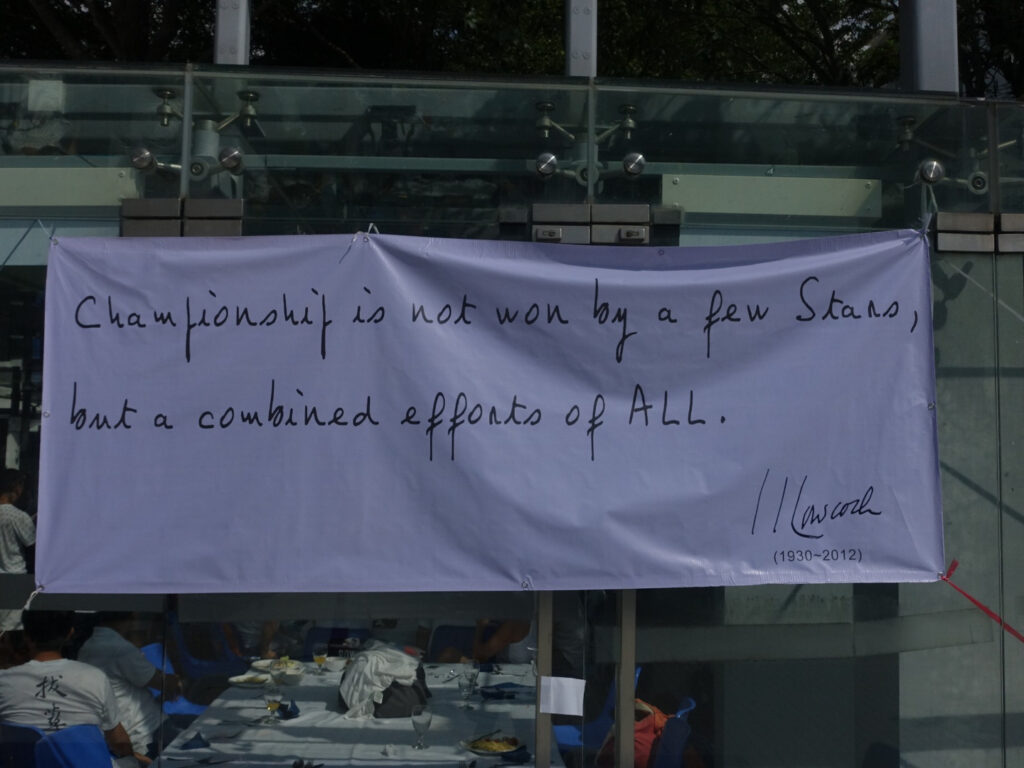 Championship is not won by a few Stars,
but a combined efforts of ALL.
(1930~2012)
拔